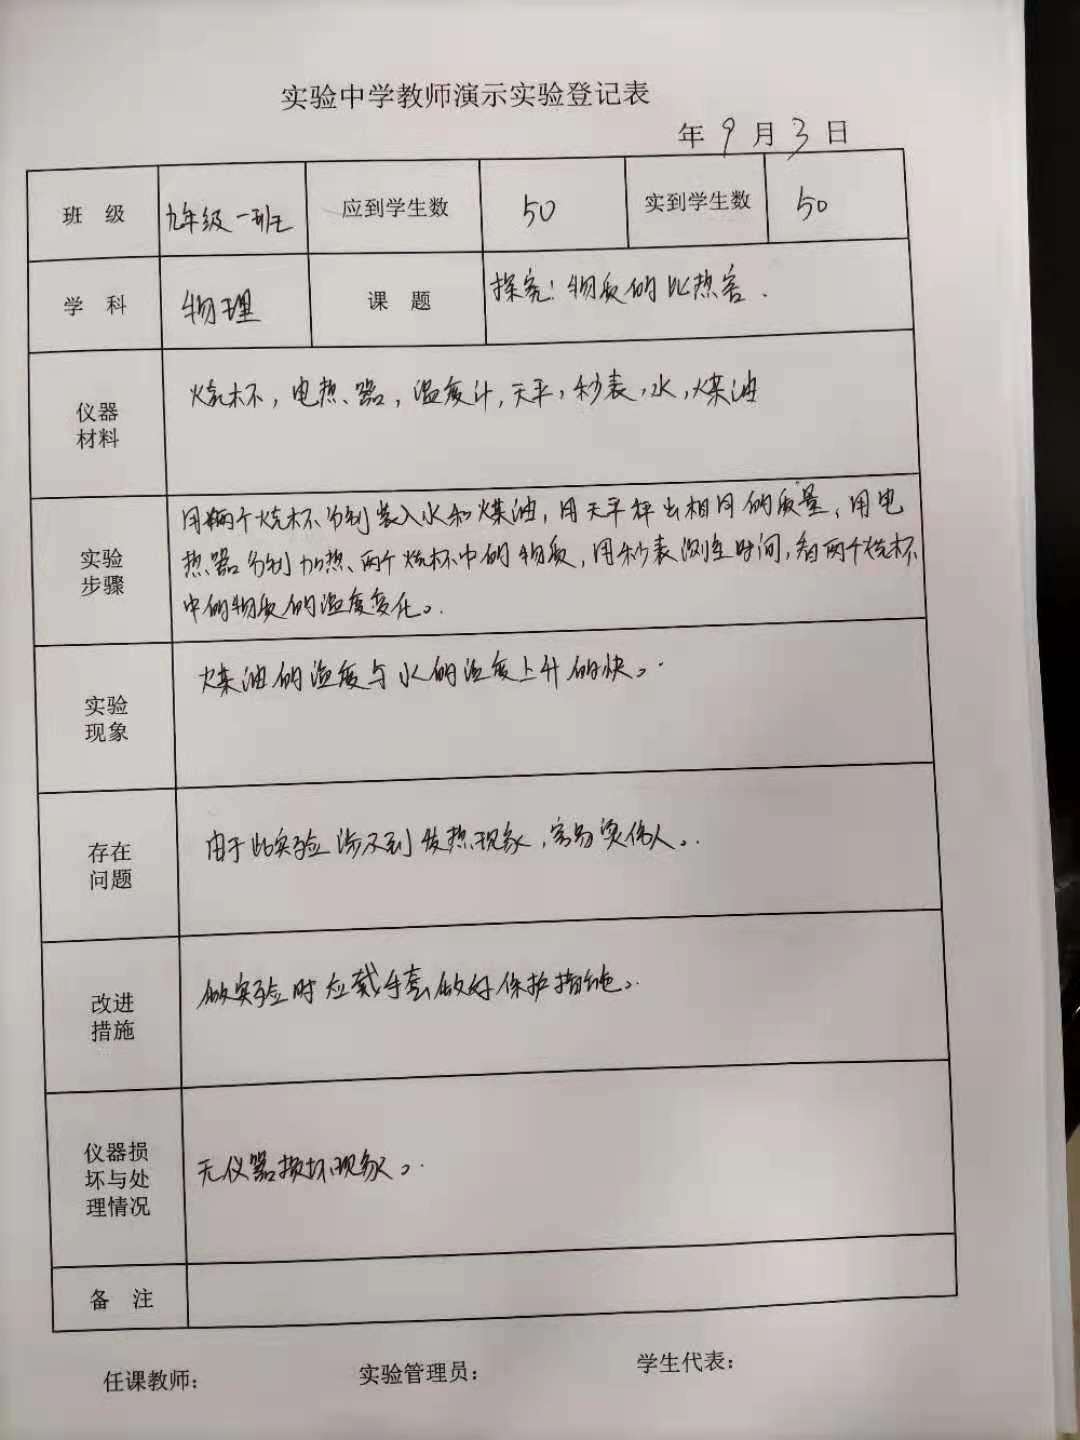 实验中学教师演示实验登记表
年 9 月 3 日
班 级 九年级一班 应到学生数 50 实到学生数 50
学 科 物理 课 题 探究:物质的比热容.
仪器
材料
烧杯,电热器,温度计,天平,秒表,水,煤油
实验
步骤
用两个烧杯分别装入水和煤油,用天平秤出相同的质量,用电
热器分别加热两个烧杯中的物质,用秒表测定时间,看两个烧杯
中的物质的温度变化。
实验
现象
煤油的温度与水的温度上升的快。
存在
问题
由于此实验涉及到发热现象,容易烫伤人。
改进
措施
做实验时应戴手套做好保护措施。
仪器损
坏与处
理情况
无仪器损坏现象。
备 注
任课教师: 实验管理员: 学生代表: